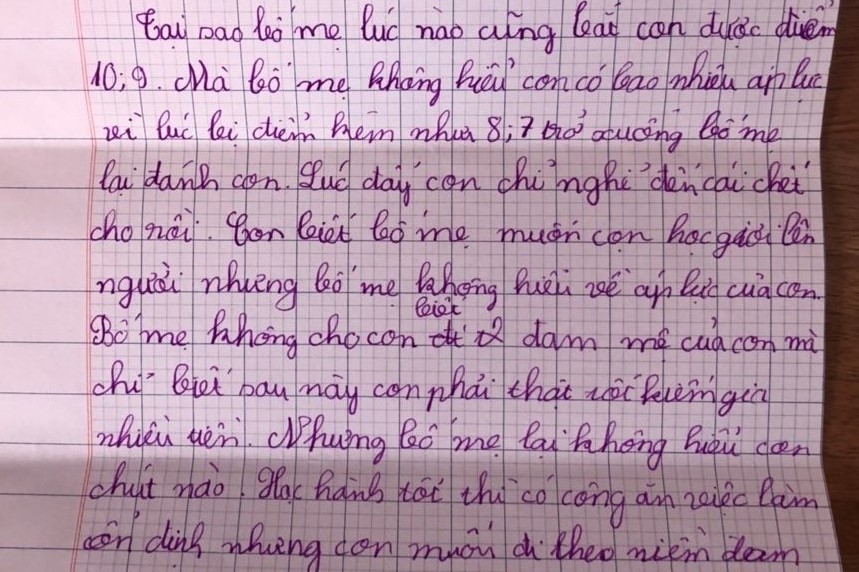 Tại sao bố mẹ lúc nào cũng bắt con được điểm
10; 9. Mà bố mẹ không hiểu con có bao nhiêu áp lực
vì lúc bị điểm kém như 8; 7 trở xuống bố mẹ
lại đánh con. Lúc đấy con chỉ nghĩ đến cái chết
cho rồi. Con biết bố mẹ muốn con học giỏi lên
người nhưng bố mẹ không hiểu về áp lực của con.
Bố mẹ không cho con biết đam mê của con mà
chỉ biết sau này con phải thật tốt kiếm
nhiều tiền. Nhưng bố mẹ lại không hiểu con
chút nào! Học hành tốt thì có công ăn việc làm
ổn định nhưng con muốn đi theo niềm đam